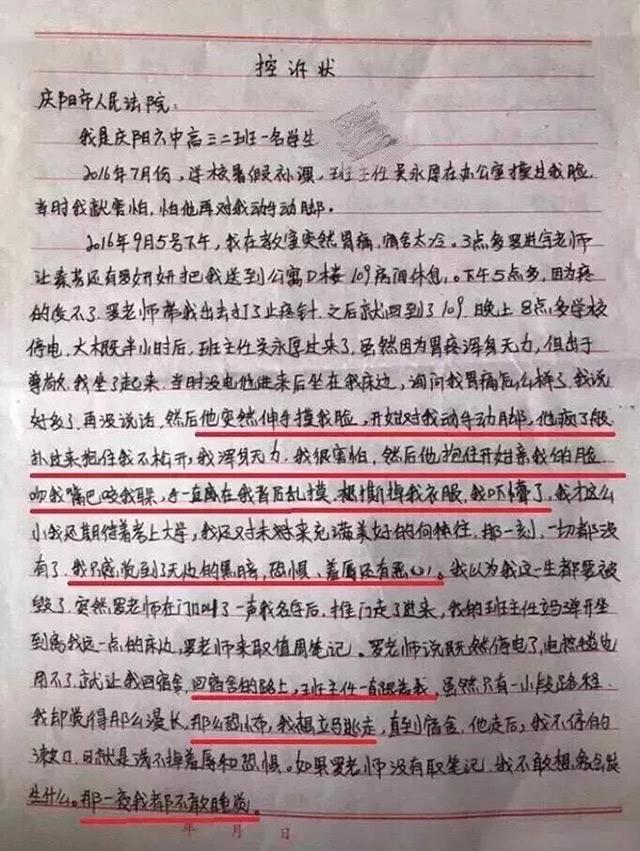 控诉状
庆阳市人民法院：
我是庆阳六中高三二班一名学生
2016年7月份，学校暑假补课，班主任吴永厚在办公室摸过我脸
当时我就害怕，怕他再对我动手动脚。
2016年9月5号下午，我在教室突然胃痛，宿舍太冷。3点多罗进宇老师
让秦芳还有罗妍妍把我送到公寓D楼109病间休息。下午5点多，因为疼
的受不了，罗老师带我出去打了止疼针，之后就回到了109。晚上8点多学校
停电，大概半小时后，班主任吴永厚过来了，虽然因为胃疼浑身无力，但出于
尊敬，我坐了起来，当时没电他进来后坐在我床边，询问我胃痛怎么样了，我说
好多了，再没说话，然后他突然伸手摸我脸，开始对我动手动脚，他疯了般
扑过来抱住我不松开，我浑身无力，我很害怕，然后他抱住开始亲我的脸
吻我嘴巴咬我耳朵，手一直在我背后乱摸，想撕掉我衣服，我吓懵了，我才这么
小我还期待着考上大学，我还对未来充满美好的向往，那一刻，一切都没
有了，我只感觉到了无边的黑暗，恐惧、羞辱还有恶心！。我以为我这一生都要被
毁了，突然罗老师在门口叫了一声我名字后，推门走了进来，我的班主任立马弹开坐
到离我远一点的床边，罗老师来取值周笔记。罗老师说既然停电了，电热毯也
用不了，就让我回宿舍，回宿舍的路上，班主任一直跟着我，虽然只有一小段路程
我却觉得那么漫长，那么恐怖，我想立马逃走，直到宿舍，他走后，我不停的
漱口，可就是洗不掉羞辱和恐惧。如果罗老师没有取笔记，我不敢想，会发
生什么。那一夜我都不敢睡觉。
年 月 日